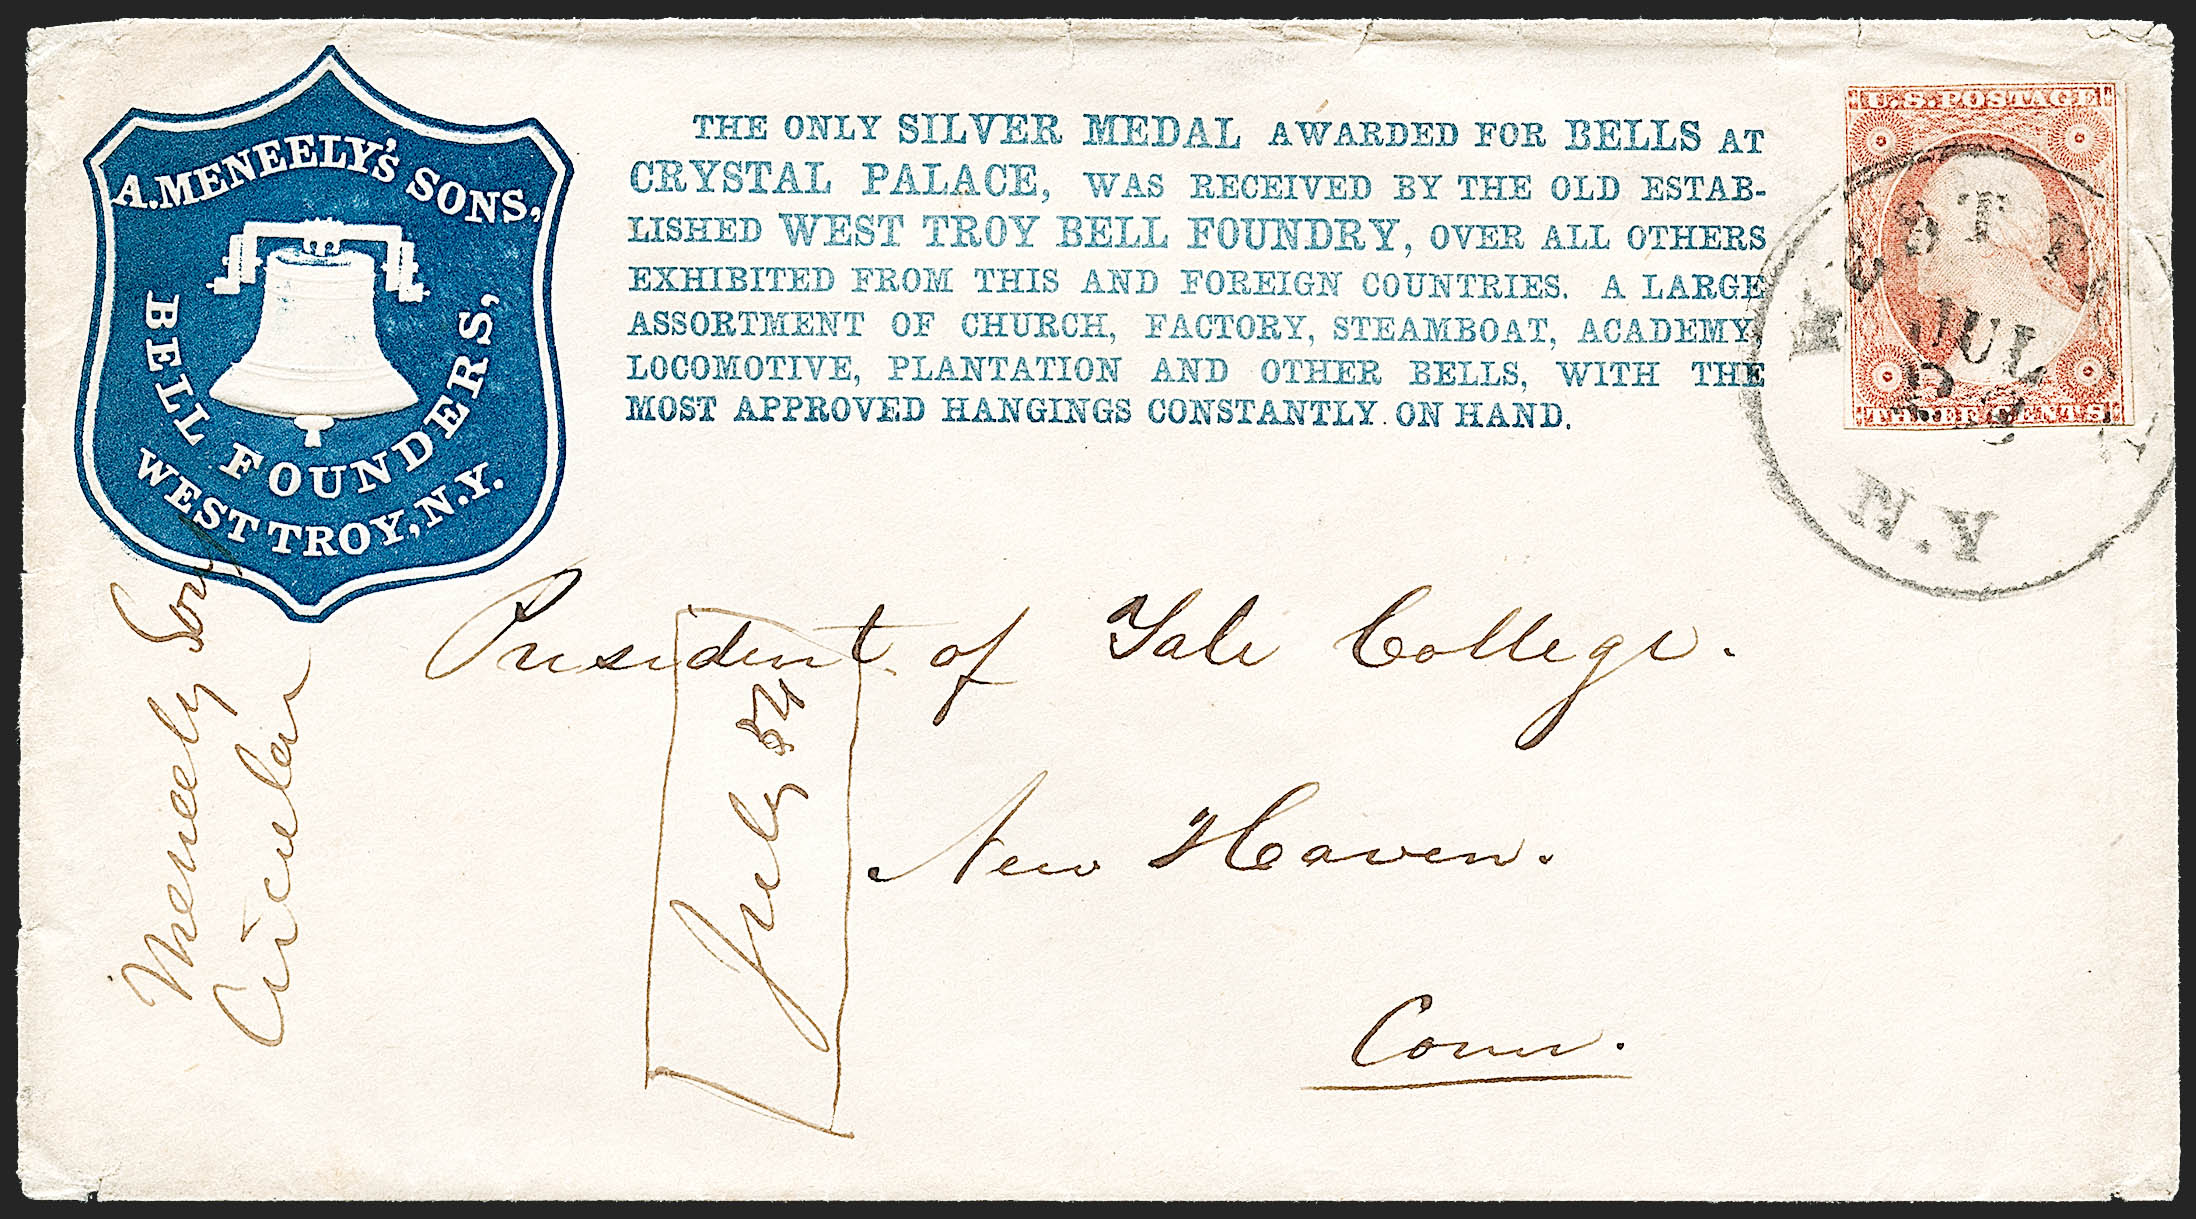 A. MENEELY'S SONS,
BELL FOUNDERS,
WEST TROY, N.Y.
THE ONLY SILVER MEDAL AWARDED FOR BELLS AT
CRYSTAL PALACE, WAS RECEIVED BY THE OLD ESTAB-
LISHED WEST TROY BELL FOUNDRY, OVER ALL OTHERS
EXHIBITED FROM THIS AND FOREIGN COUNTRIES. A LARGE
ASSORTMENT OF CHURCH, FACTORY, STEAMBOAT, ACADEMY,
LOCOMOTIVE, PLANTATION AND OTHER BELLS, WITH THE
MOST APPROVED HANGINGS CONSTANTLY ON HAND.
U.S. POSTAGE
THREE CENTS
WEST TROY
JUL
N.Y
President of Yale College.
New Haven.
Conn.
Meneely Sons
Circular
July 54